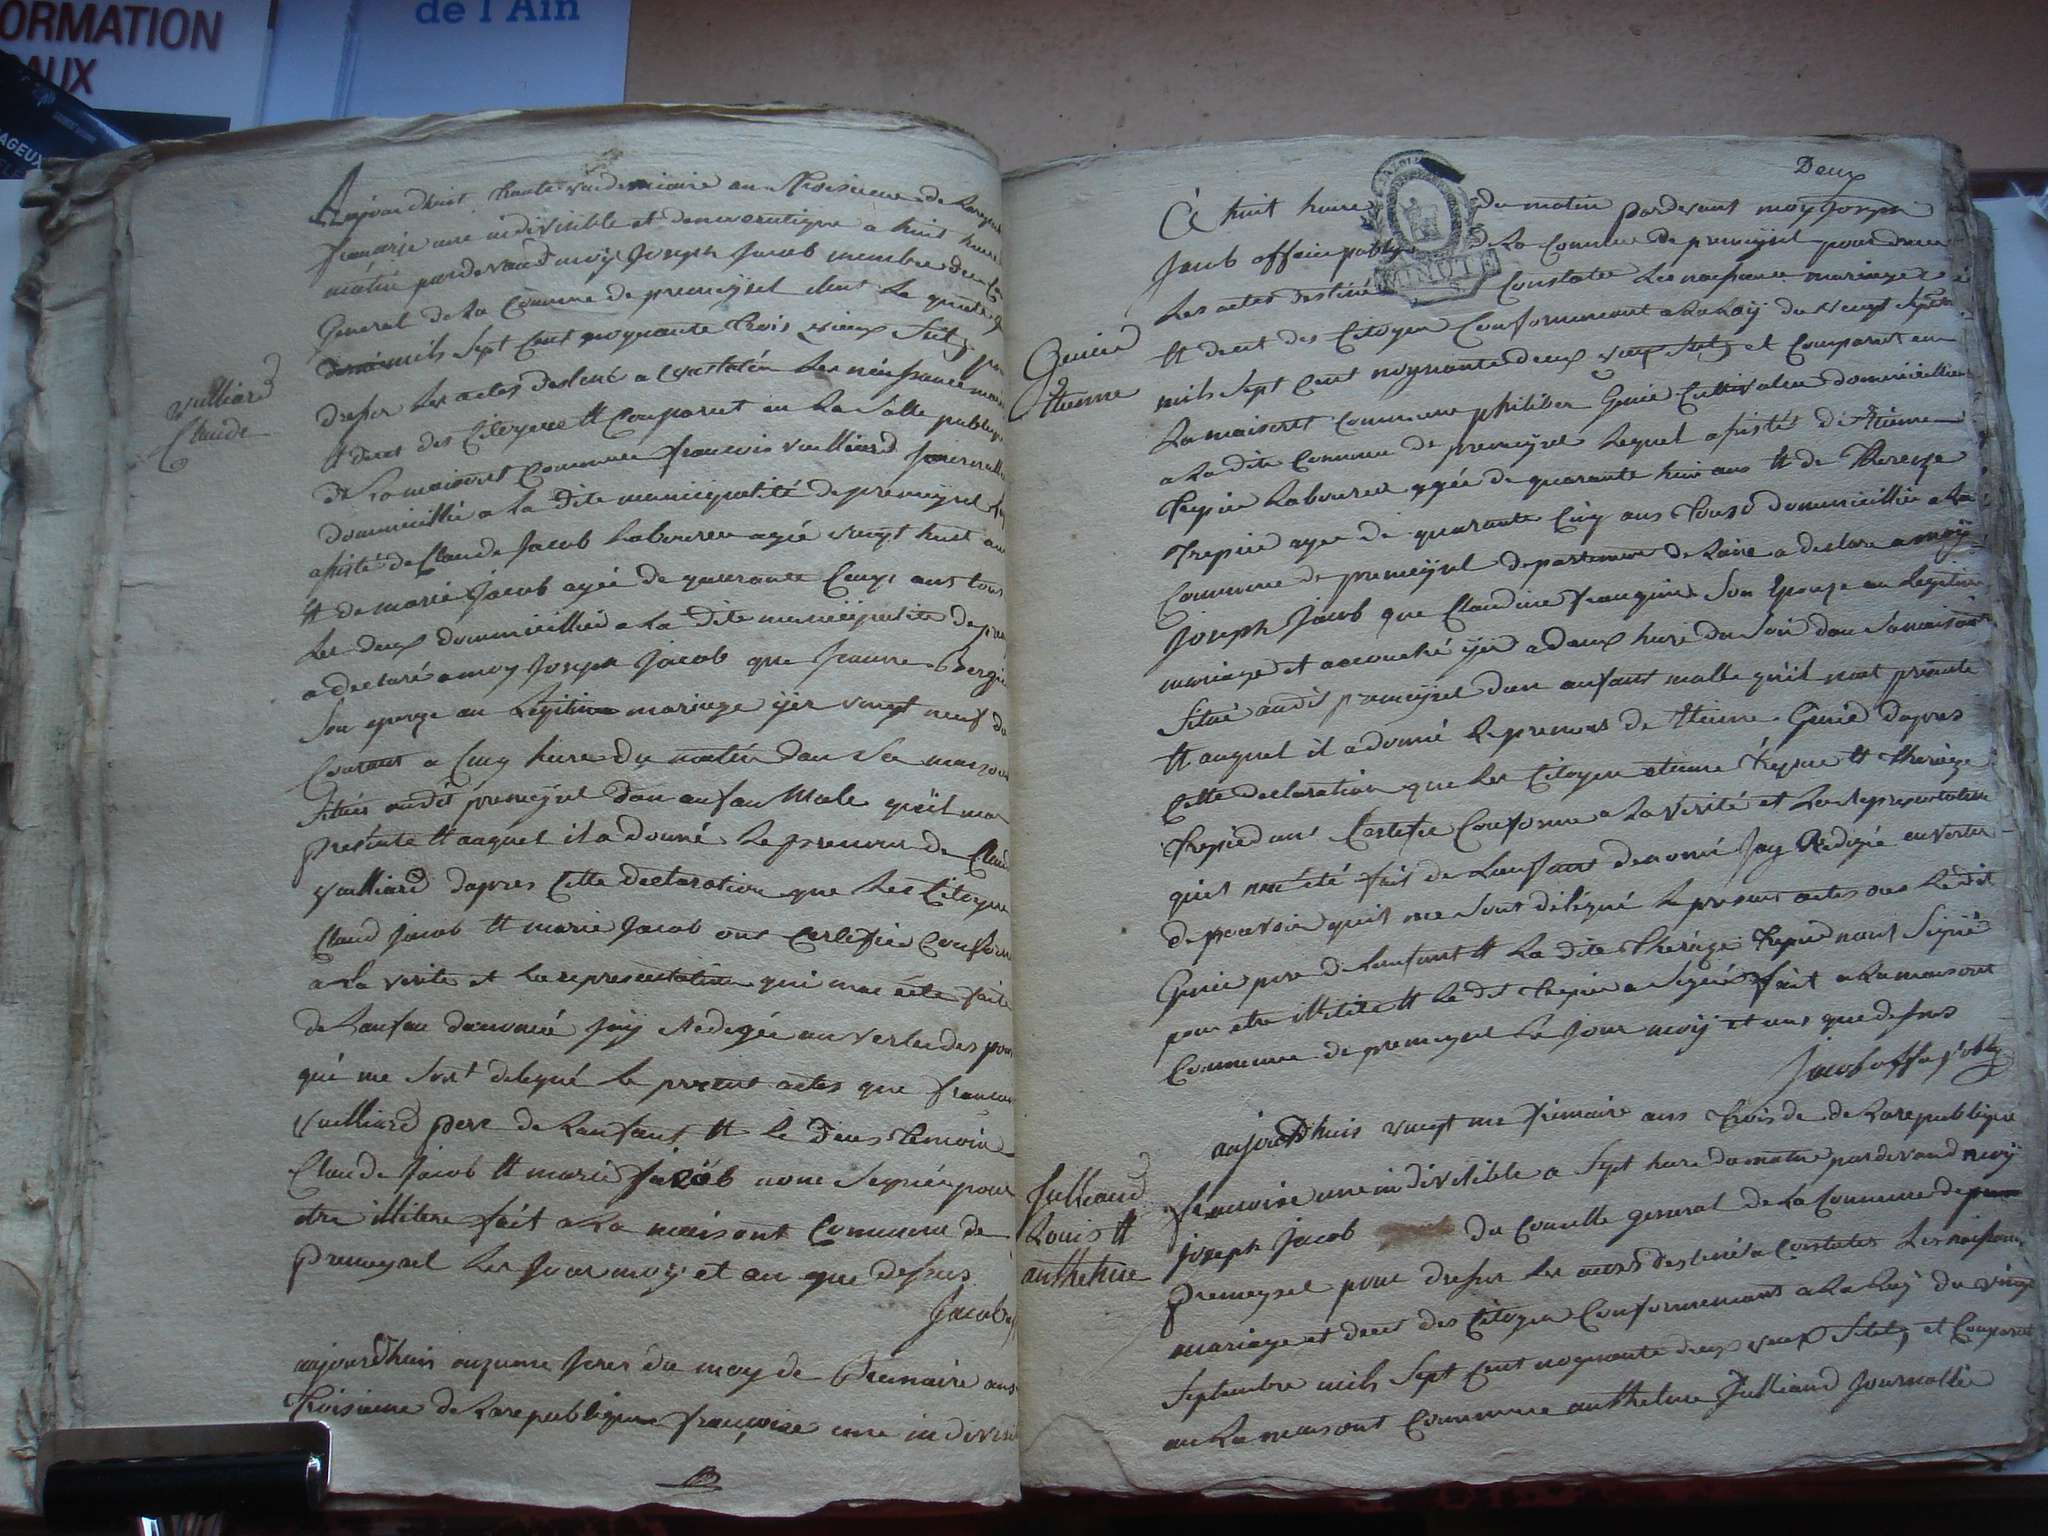 ORMATION
AUX
AGEUX
de l'Ain
Aujourdhuit trante vandemiaire an troisieme de Larepub
francaise une indivisible et democratique a huit heure
matin pardevand moÿ Joseph Jacob membre du Con
General de La Commune de premeÿsel
mils Sept Cent noynante trois vieux Stil
dresser Les actes destiné a constatér Les naissance mari
et deces des Citoyen et Comparut en La Salle publique
de La maisont Commune francois vuilliard Journallie
domicillié a La dite municipalité de premeÿsel
assisté de Claude Jacob Laboureur agée vingt huit an
et de marie Jacob agée de quarante Cinq ans tous
Les deux dommicillié a La dite municipalité de pre
a declaré amoy Joseph Jacob que Jeanne
Son epouze an Legitime mariage ÿér vingt neuf du
Courant a Cinq hure du matin dan Sa maison
Situé audit premeÿsel dan anfan Male quil ma
presénte et auquel il a donné Le prenom de Claud
vuilliard dapres Cette declaration que Les Citoyen
Claud Jacob et marie Jacob ont certifié Conforme
a La verité et La representation qui ma été faite
de Lanfan denomé Jaÿ Redigée an vertu des pouv
qui me Sont delegué Le present actes que francois
vuilliard pere de Lanfant et Le deux temoin
Claude Jacob et marie Jacob nont Signée pour
etre illitere fait a La maisont Commune de
Premeysel Les Jour moy et an que dessus
Jacob
aujourdhuis onzieme Jour du moy de Brumaire ans
troisieme de Larepublique françoise une indivisi
vuilliard
Claude
Deux
MINUTE
à huit heure du matin pardevant moy Joseph
Jacob officie public La Commune de premeÿsel pour dresser
Les actes destiné Constater Les naissance mariage
et deces des Citoyen Conformement a La Loÿ du vingt Septem
mils Sept Cent noynante deux vieux Stil et Comparut en
La maisont Commune philiber Genié Cultivateur dommicillié
a La dite Commune de premeysel Lequel assisté d'Etienne
trepié Laboureur agée de quarante huit ans et de Thereze
trepié agée de quarante Cinq ans tous dommicillié a La
Commune de premeÿsel departement de Lain a declaré a moÿ
Joseph Jacob que Claudine Son Epouze an Legitime
mariage et accouché ÿér a deux hure du Soir dan Samaisont
Situé audit premeÿsel dan anfant malle quil mat presente
et auquel il a donné Le prenoms de Etienne Genié dapres
Cette declaration que Les Citoyen etienne trepié et thereze
trepié ont Certifié Conforme a La vérité et La Representation
quis ma été fait de Lanfant denomé Jaÿ Redigié an vertu
de pouvoir quil me Sont délégué Le present actes que Ledit
Genié pere de Lanfant et La dite thereze trepié nont Signé
pour etre illitere et Le dit trepié a Signé fait a La maisont
Commune de premeysel Le Jour moÿ et ans que dessus
Jacob offie publiq
Genié
Etienne
aujourdhuis vingt me frimaire ans trois de de Larepublique
francoise une indivisible a Sept hure du matin pardevand moÿ
Joseph Jacob du Conselle general de La Commune de
Premeysel pour dresser Les actes destiné a Constater Les naissan
mariage et deces des Citoyen Conformemant a La Loÿ du vingt
Septembre mils Sept Cent noynante deux vieux Stile et Comparut
an La maisont Commune anthelme Julliand Journallié
Julliand
Louis et
anthelme